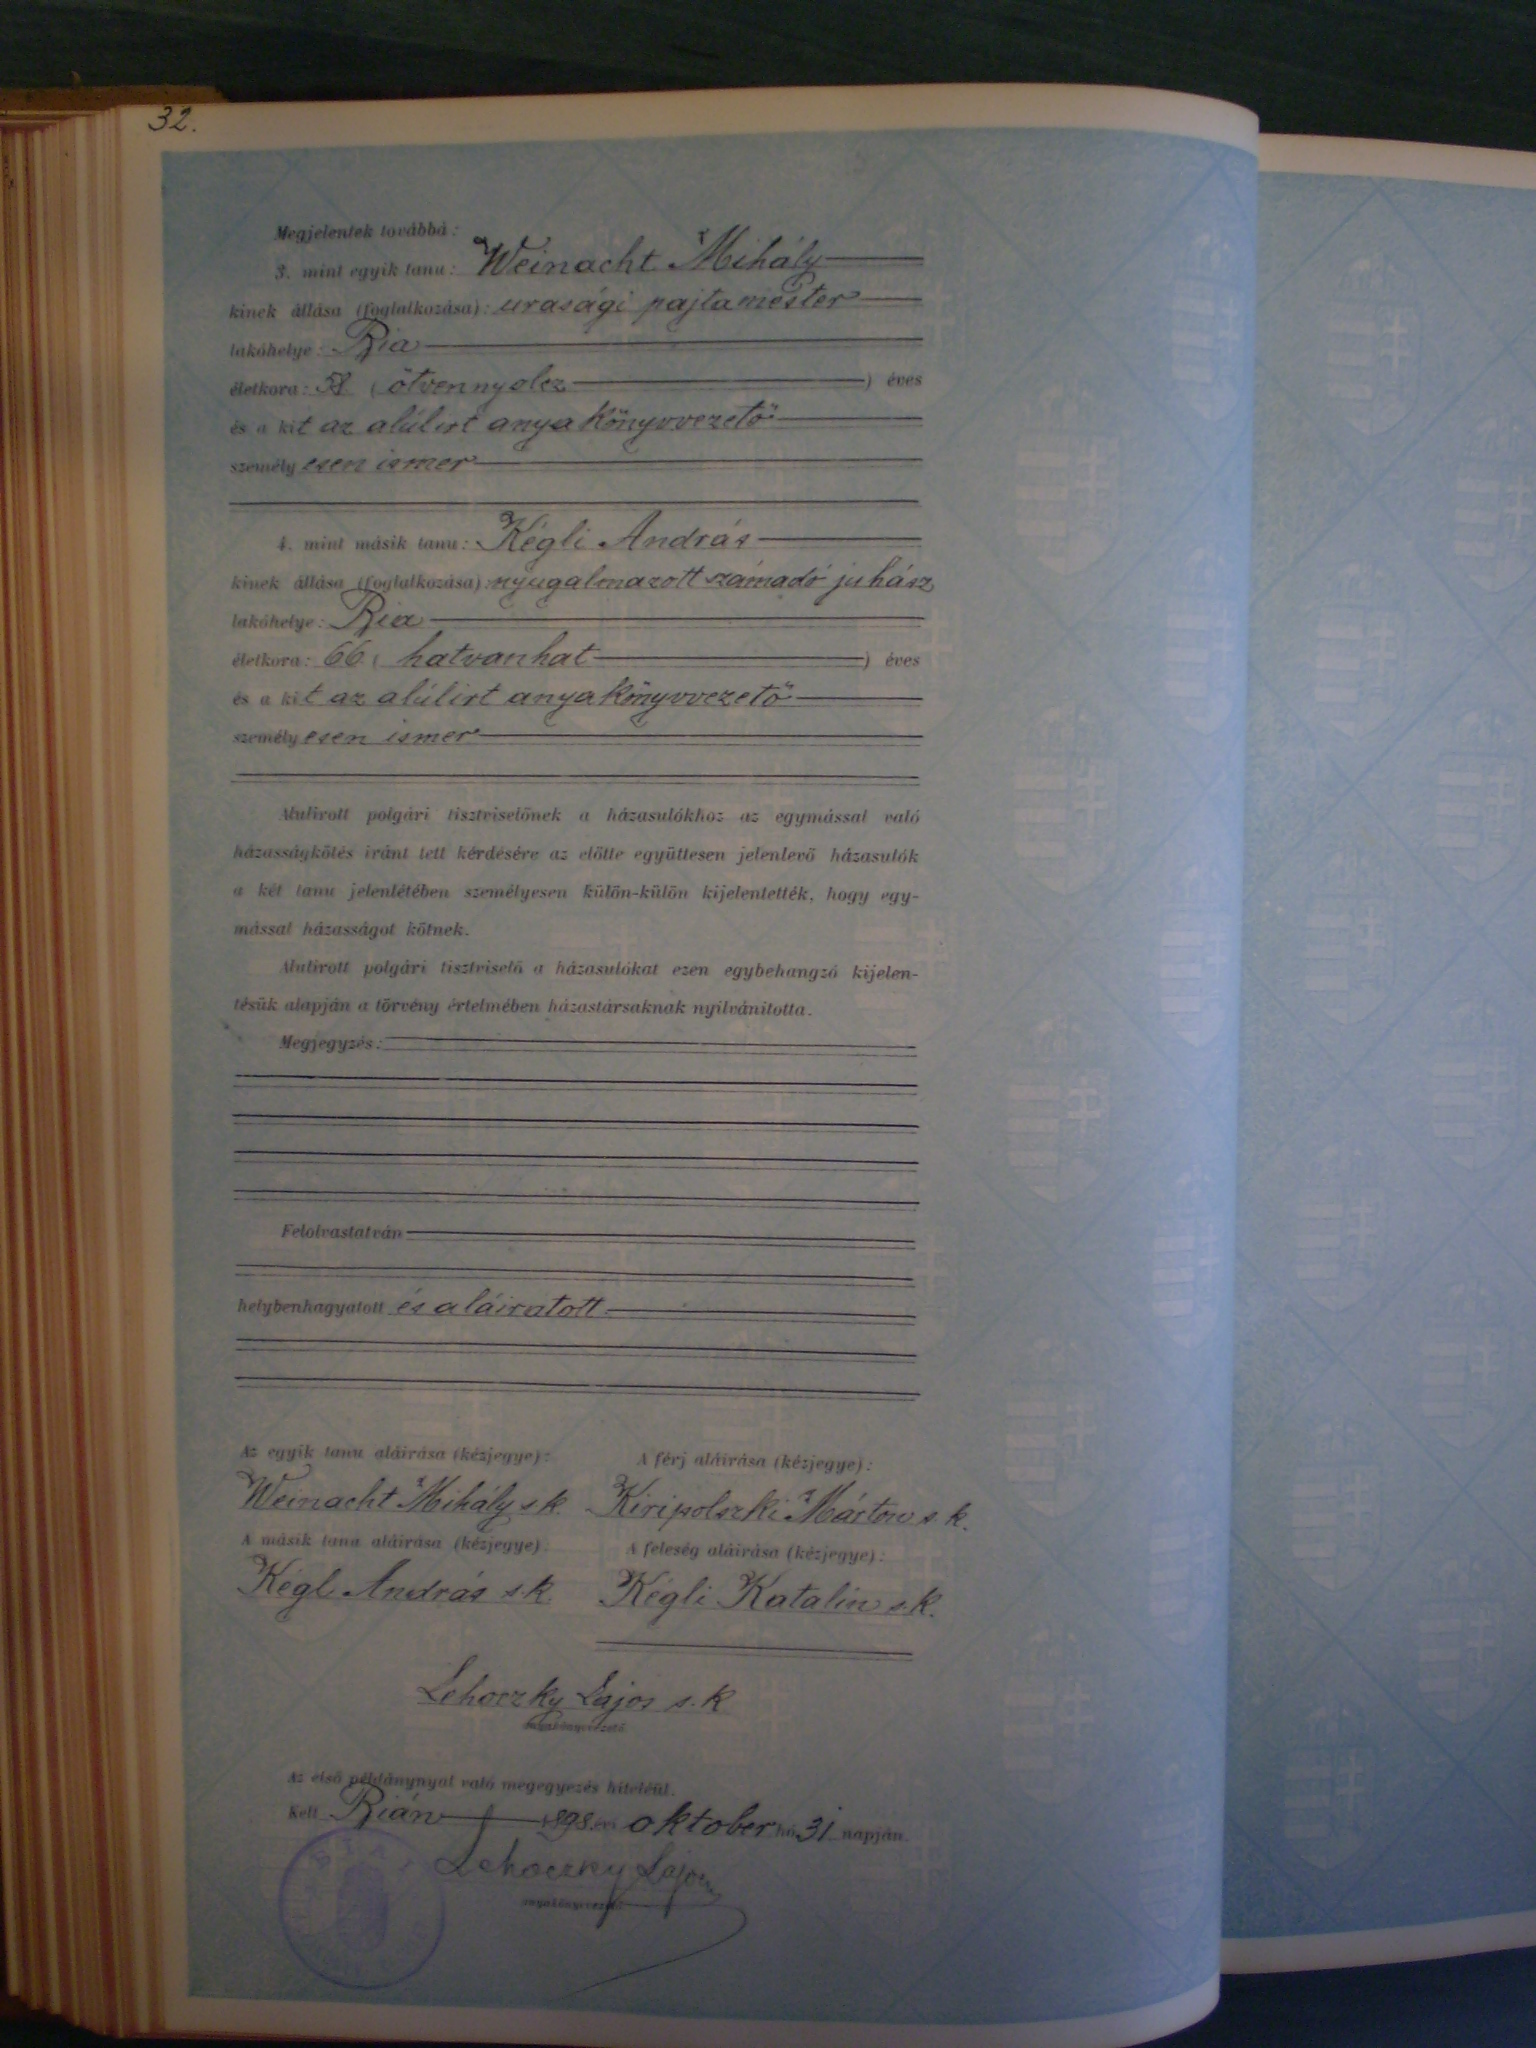 32.
Megjelentek továbbá:
3. mint egyik tanu: Weinacht Mihály
kinek állása (foglalkozása): urasági pajtamester
lakóhelye: Ria
életkora: 58 (ötvennyolcz) éves
és a kit az alúlirt anyakönyvvezető
személyesen ismer
4. mint másik tanu: Kégli András
kinek állása (foglalkozása): nyugalmazott számadó juhász
lakóhelye: Ria
életkora: 66 (hatvanhat) éves
és a kit az alúlirt anyakönyvvezető
személyesen ismer
Alulirott polgári tisztviselőnek a házasulókhoz az egymással való
házasságkötés iránt tett kérdésére az előtte együttesen jelenlevő házasulók
a két tanu jelenlétében személyesen külön-külön kijelentették, hogy egy-
mással házasságot kötnek.
Alulirott polgári tisztviselő a házasulókat ezen egybehangzó kijelen-
tésük alapján a törvény értelmében házastársaknak nyilvánitotta.
Megjegyzés:
Felolvastatván
helybenhagyatott és aláiratott
Az egyik tanu aláirása (kézjegye): A férj aláirása (kézjegye):
Weinacht Mihály s.k. Kiripolszki Márton s.k.
A másik tanu aláirása (kézjegye): A feleség aláirása (kézjegye):
Kégl András s.k. Kégli Katalin s.k.
Lehoczky Lajos s.k
anyakönyvvezető
Az első példánynyal való megegyezés hiteléül.
Kelt Rián 1898. évi oktober hó 31 napján.
Lehoczky Lajos
anyakönyvvezető